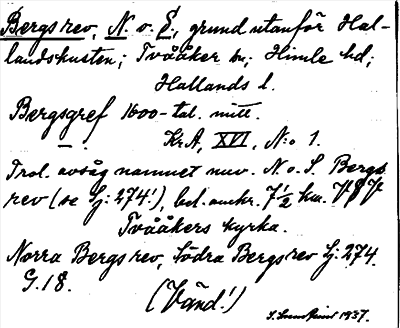 Bergsrev, N. o. S., grund utanför Hal-
landskusten; Tvååker sn; Himle hd;
Hallands l.
Bergsgref 1600-tal. mitt.
Kr.A, XVI, N:o 1.
Trol. avsåg namnet nuv. N. o. S. Bergs
rev (se Sj: 274!), bel. omkr. 7 1/2 km. VSV
Tvååkers kyrka.
Norra Bergsrev, Södra Bergsrev Sj: 274.
G. 18.
(Vänd!)
1937.